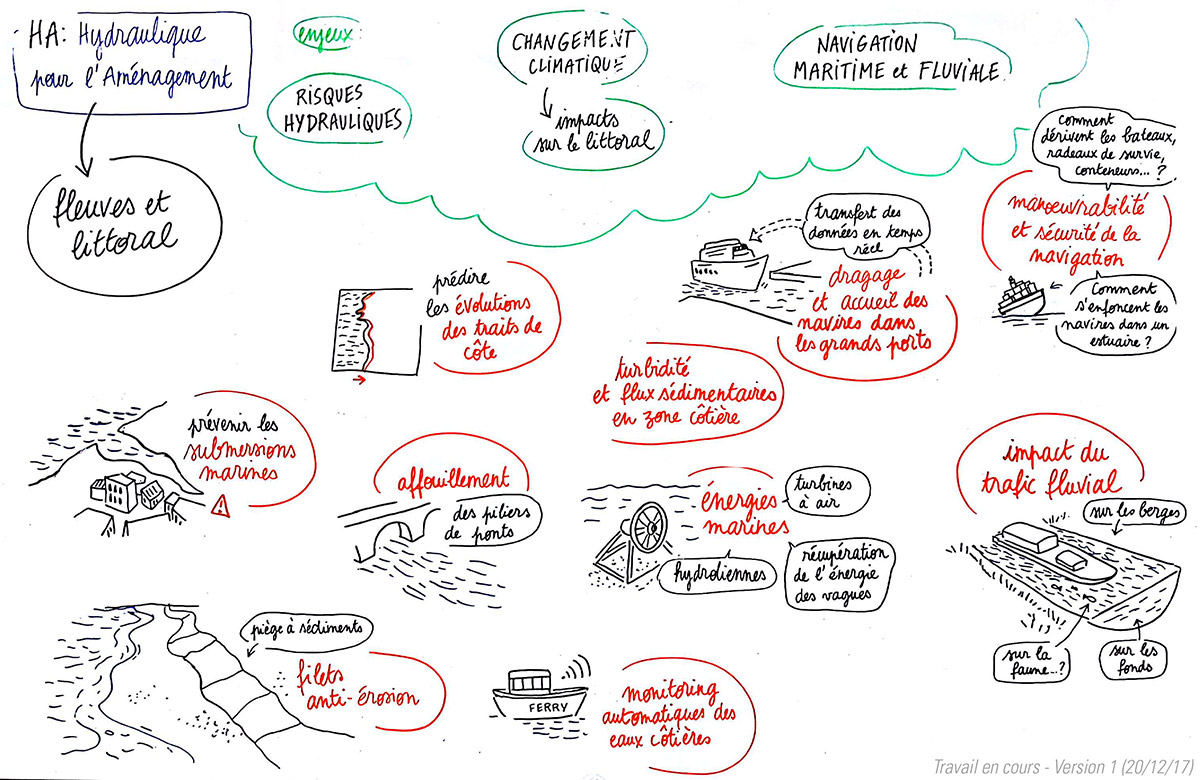 HA: Hydraulique
pour l'Aménagement
fleuves et
littoral
enjeux:
RISQUES
HYDRAULIQUES
CHANGEMENT
CLIMATIQUE
impacts
sur le littoral
NAVIGATION
MARITIME et FLUVIALE
comment
dérivent les bateaux,
radeaux de survie,
conteneurs...?
manoeuvrabilité
et sécurité de la
navigation
Comment
s'enfoncent les
navires dans un
estuaire?
transfert des
données en temps
réel
dragage
et accueil des
navires dans
les grands ports
prédire
les évolutions
des traits de
côte
turbidité
et flux sédimentaires
en zone côtière
prévenir les
submersions
marines
affouillement
des piliers
de ponts
énergies
marines
turbines
à air
hydroliennes
récupération
de l'énergie
des vagues
impact du
trafic fluvial
sur les berges
sur la
faune...?
sur les
fonds
piège à sédiments
filets
anti-érosion
FERRY
monitoring
automatiques des
eaux côtières
Travail en cours - Version 1 (20/12/17)